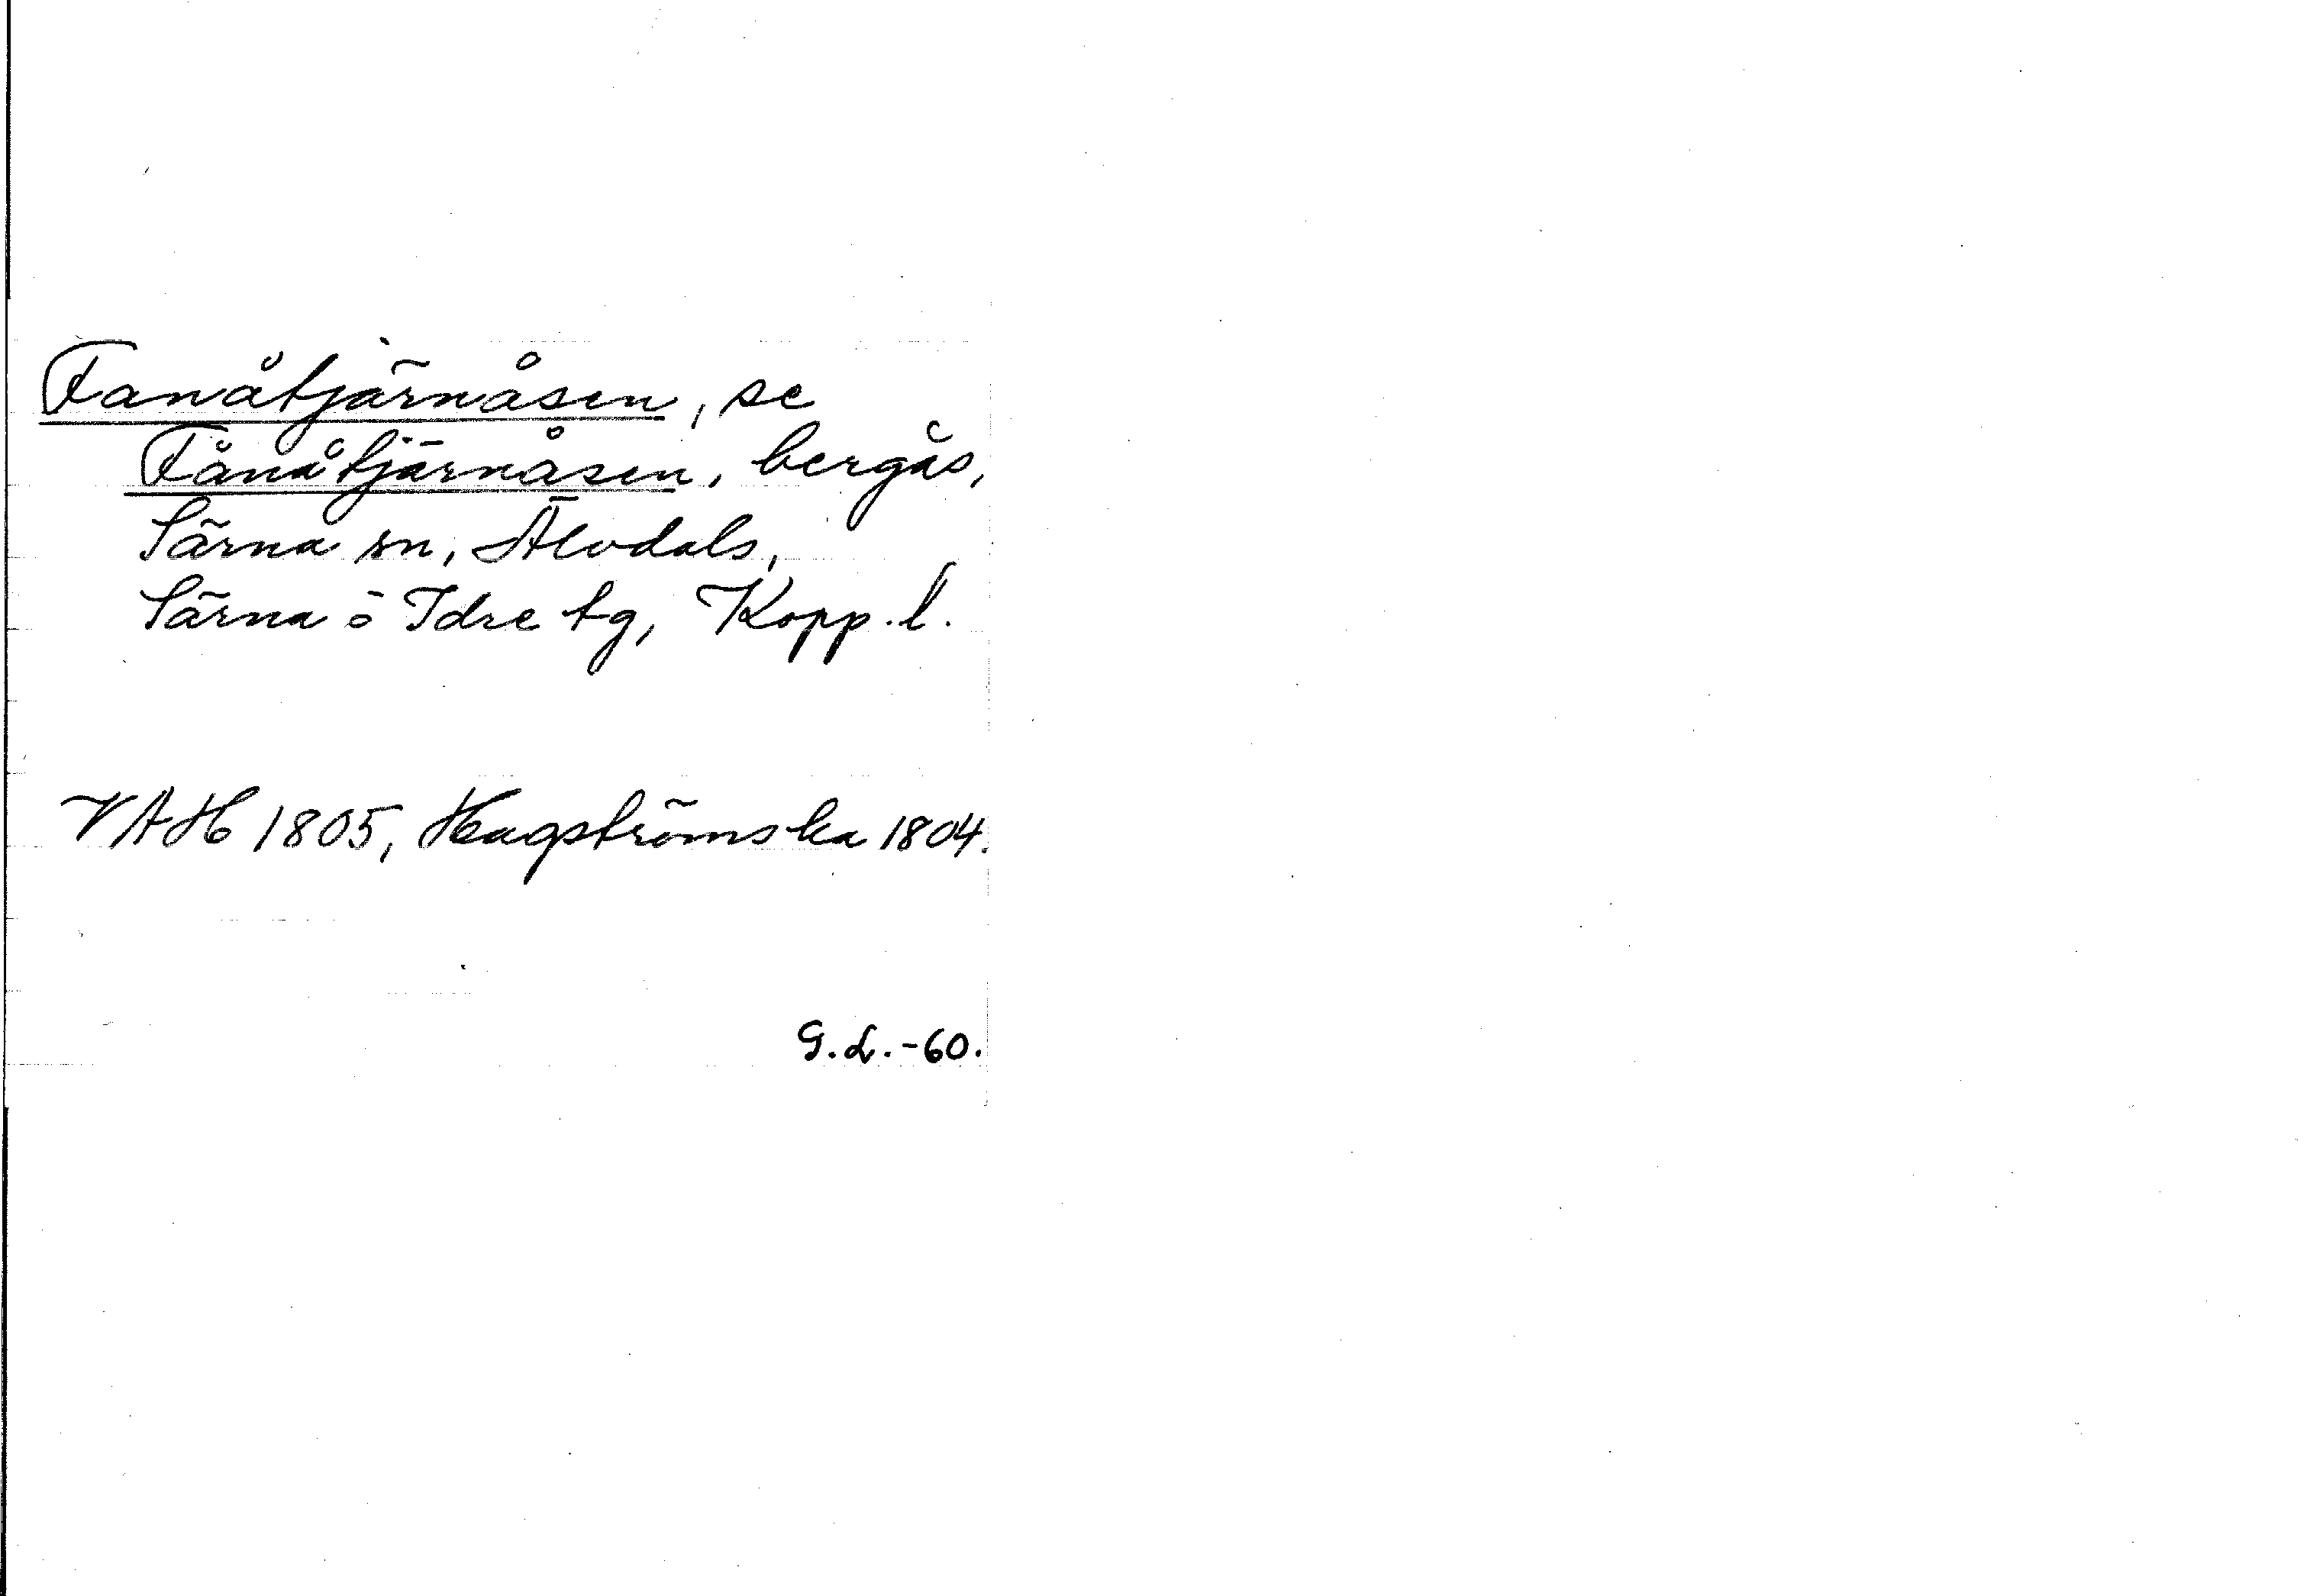 Fanåtjärnåsen, se
Fånåtjärnåsen, bergås,
Särna sn, Älvdals,
Särna ö Idre tg, Kopp. l.
VAH 1805, Hagströmska 1804.
G.L.-60.